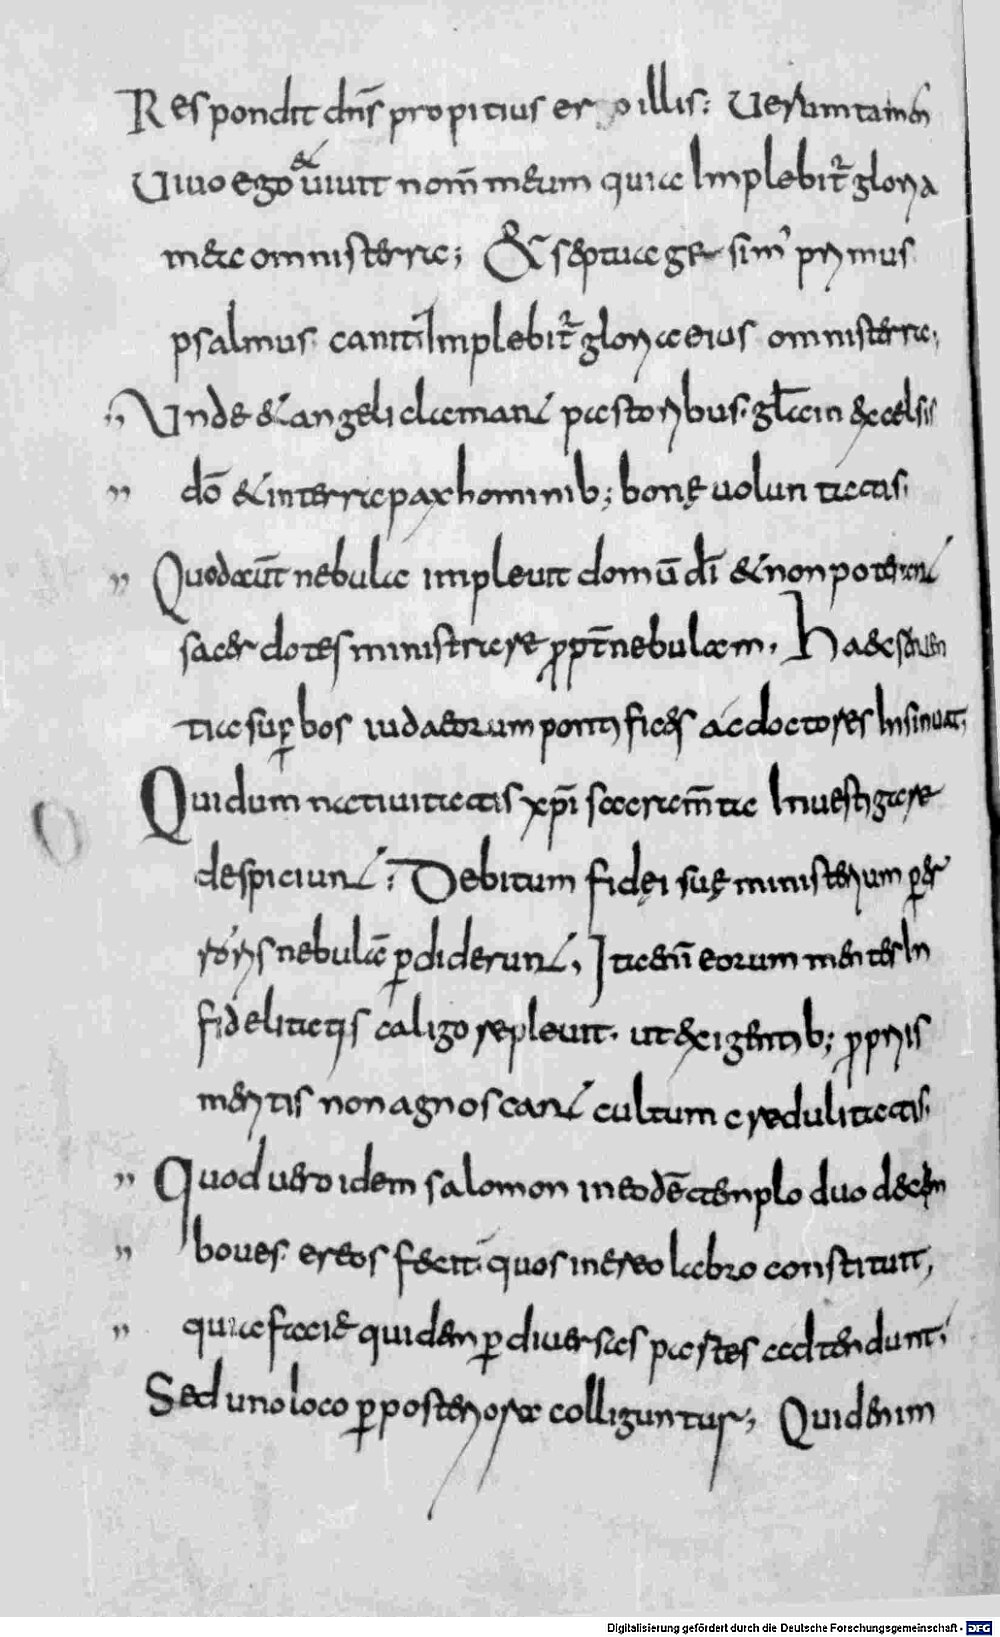 Respondit dn̄s propitius ergo illis: Uerumtamen
Uiuo ego & uiuit nom̄ meum quia Implebit᷑ gloria
mea omnis terra; & septuagesim᾽ primus
psalmus canit Implebit᷑ gloria eius omnis terra;
Unde & angeli clamant pastoribus. gl̄a in excelsis
dō & in terra pax hominib; bonę uoluntatis.
Quod aut̄ nebula impleuit domū dī & non poterant
sacerdotes ministrare ꝓpt̄ nebulam. Haec senten
tia suꝑbos iudaeorum pontifices ac doctores Insinuat,
Qui dum natiuitatis xp̄i sacram̄ta Inuestigare
despiciunt; Debitum fidęi suę ministerium ꝑ er
roris nebulā ꝑdiderunt, Ita eni̅ eorum mentes In
fidelitatis caligo repleuit. ut exigentib; ꝓpriis
meritis non agnoscant cultum credulitatis.
Quod uero idem salomon in eodē templo duodecim
boues ereos fecit. quos in ereo labro constituit,
qui a facie quidem ꝑ diuersas partes adtendunt,
Sed uno loco ꝑ posteriora colliguntur; Quid enim
Digitalisierung gefördert durch die Deutsche Forschungsgemeinschaft - DFG